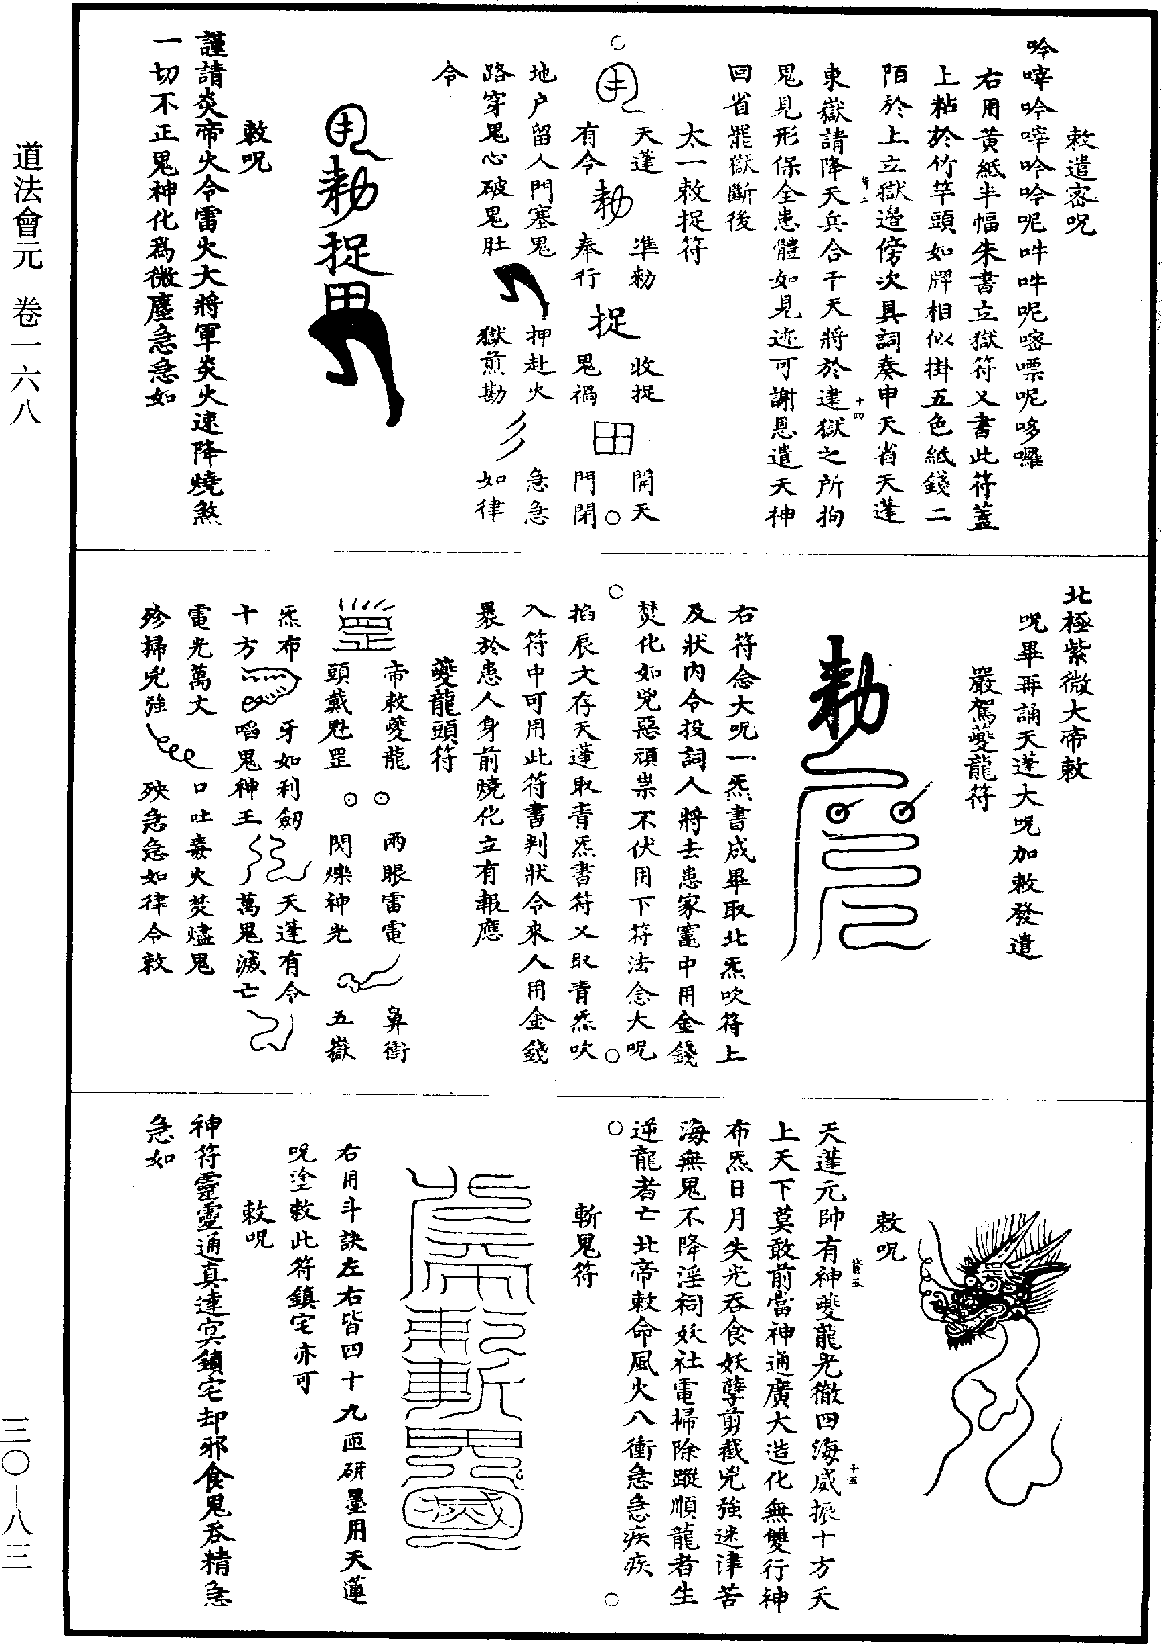 道法會元　卷一六八
三〇—八三
敕遣咨呪
吽㗭吽㗭吽吽呢吽吽呢嘧嘌呢哆囉
右用黃紙半幅朱書立獄符又書此符蓋
上粘於竹竿頭如牌相似掛五色紙錢二
陌於上立獄邊傍次具詞奏申天省天蓬
東嶽請降天兵合干天將於建獄之所拘
鬼見形保全患體如見迹可謝恩遣天神
回省罷獄斷後
太一敕捉符
天蓬
有令
勅
準勅
奉行
捉
收捉
鬼禍
田
開天
門閉
地户留人門塞鬼
路穿鬼心破鬼肚
押赴火
獄煎勘
急急
如律
令
勅捉
敕呪
謹請炎帝火令雷火大將軍炎火速降燒煞
一切不正鬼神化為微塵急急如
北極紫微大帝敕
呪畢再誦天蓬大呪加敕發遣
嚴駕夔龍符
勅
右符念大呪一炁書成畢取北炁吹符上
及狀內令投詞人將去患家竈中用金錢
焚化如兇惡頑祟不伏用下符法念大呪
掐辰文存天蓬取青炁書符又取青炁吹
入符中可用此符書判狀令來人用金錢
暴於患人身前燒化立有報應
夔龍頭符
帝敕夔龍
頭戴魁罡
兩眼雷電
閃爍神光
鼻衝
五嶽
炁布
十方
牙如利劒
啗鬼神王
天蓬有令
萬鬼滅亡
電光萬丈
殄掃兇強
口吐毒火焚燼鬼
殃急急如律令敕
敕呪
天蓬元帥有神夔龍光徹四海威振十方天
上天下莫敢前當神通廣大造化無雙行神
布炁日月失光吞食妖孽剪截兇強迷津苦
海無鬼不降淫祠妖社電掃除蹤順龍者生
逆龍者亡北帝敕命風火八衝急急疾疾
斬鬼符
右用斗訣左右皆四十九匝研墨用天蓬
呪塗敕此符鎮宅亦可
敕呪
神符靈靈通真達冥鎮宅却邪食鬼吞精急
急如